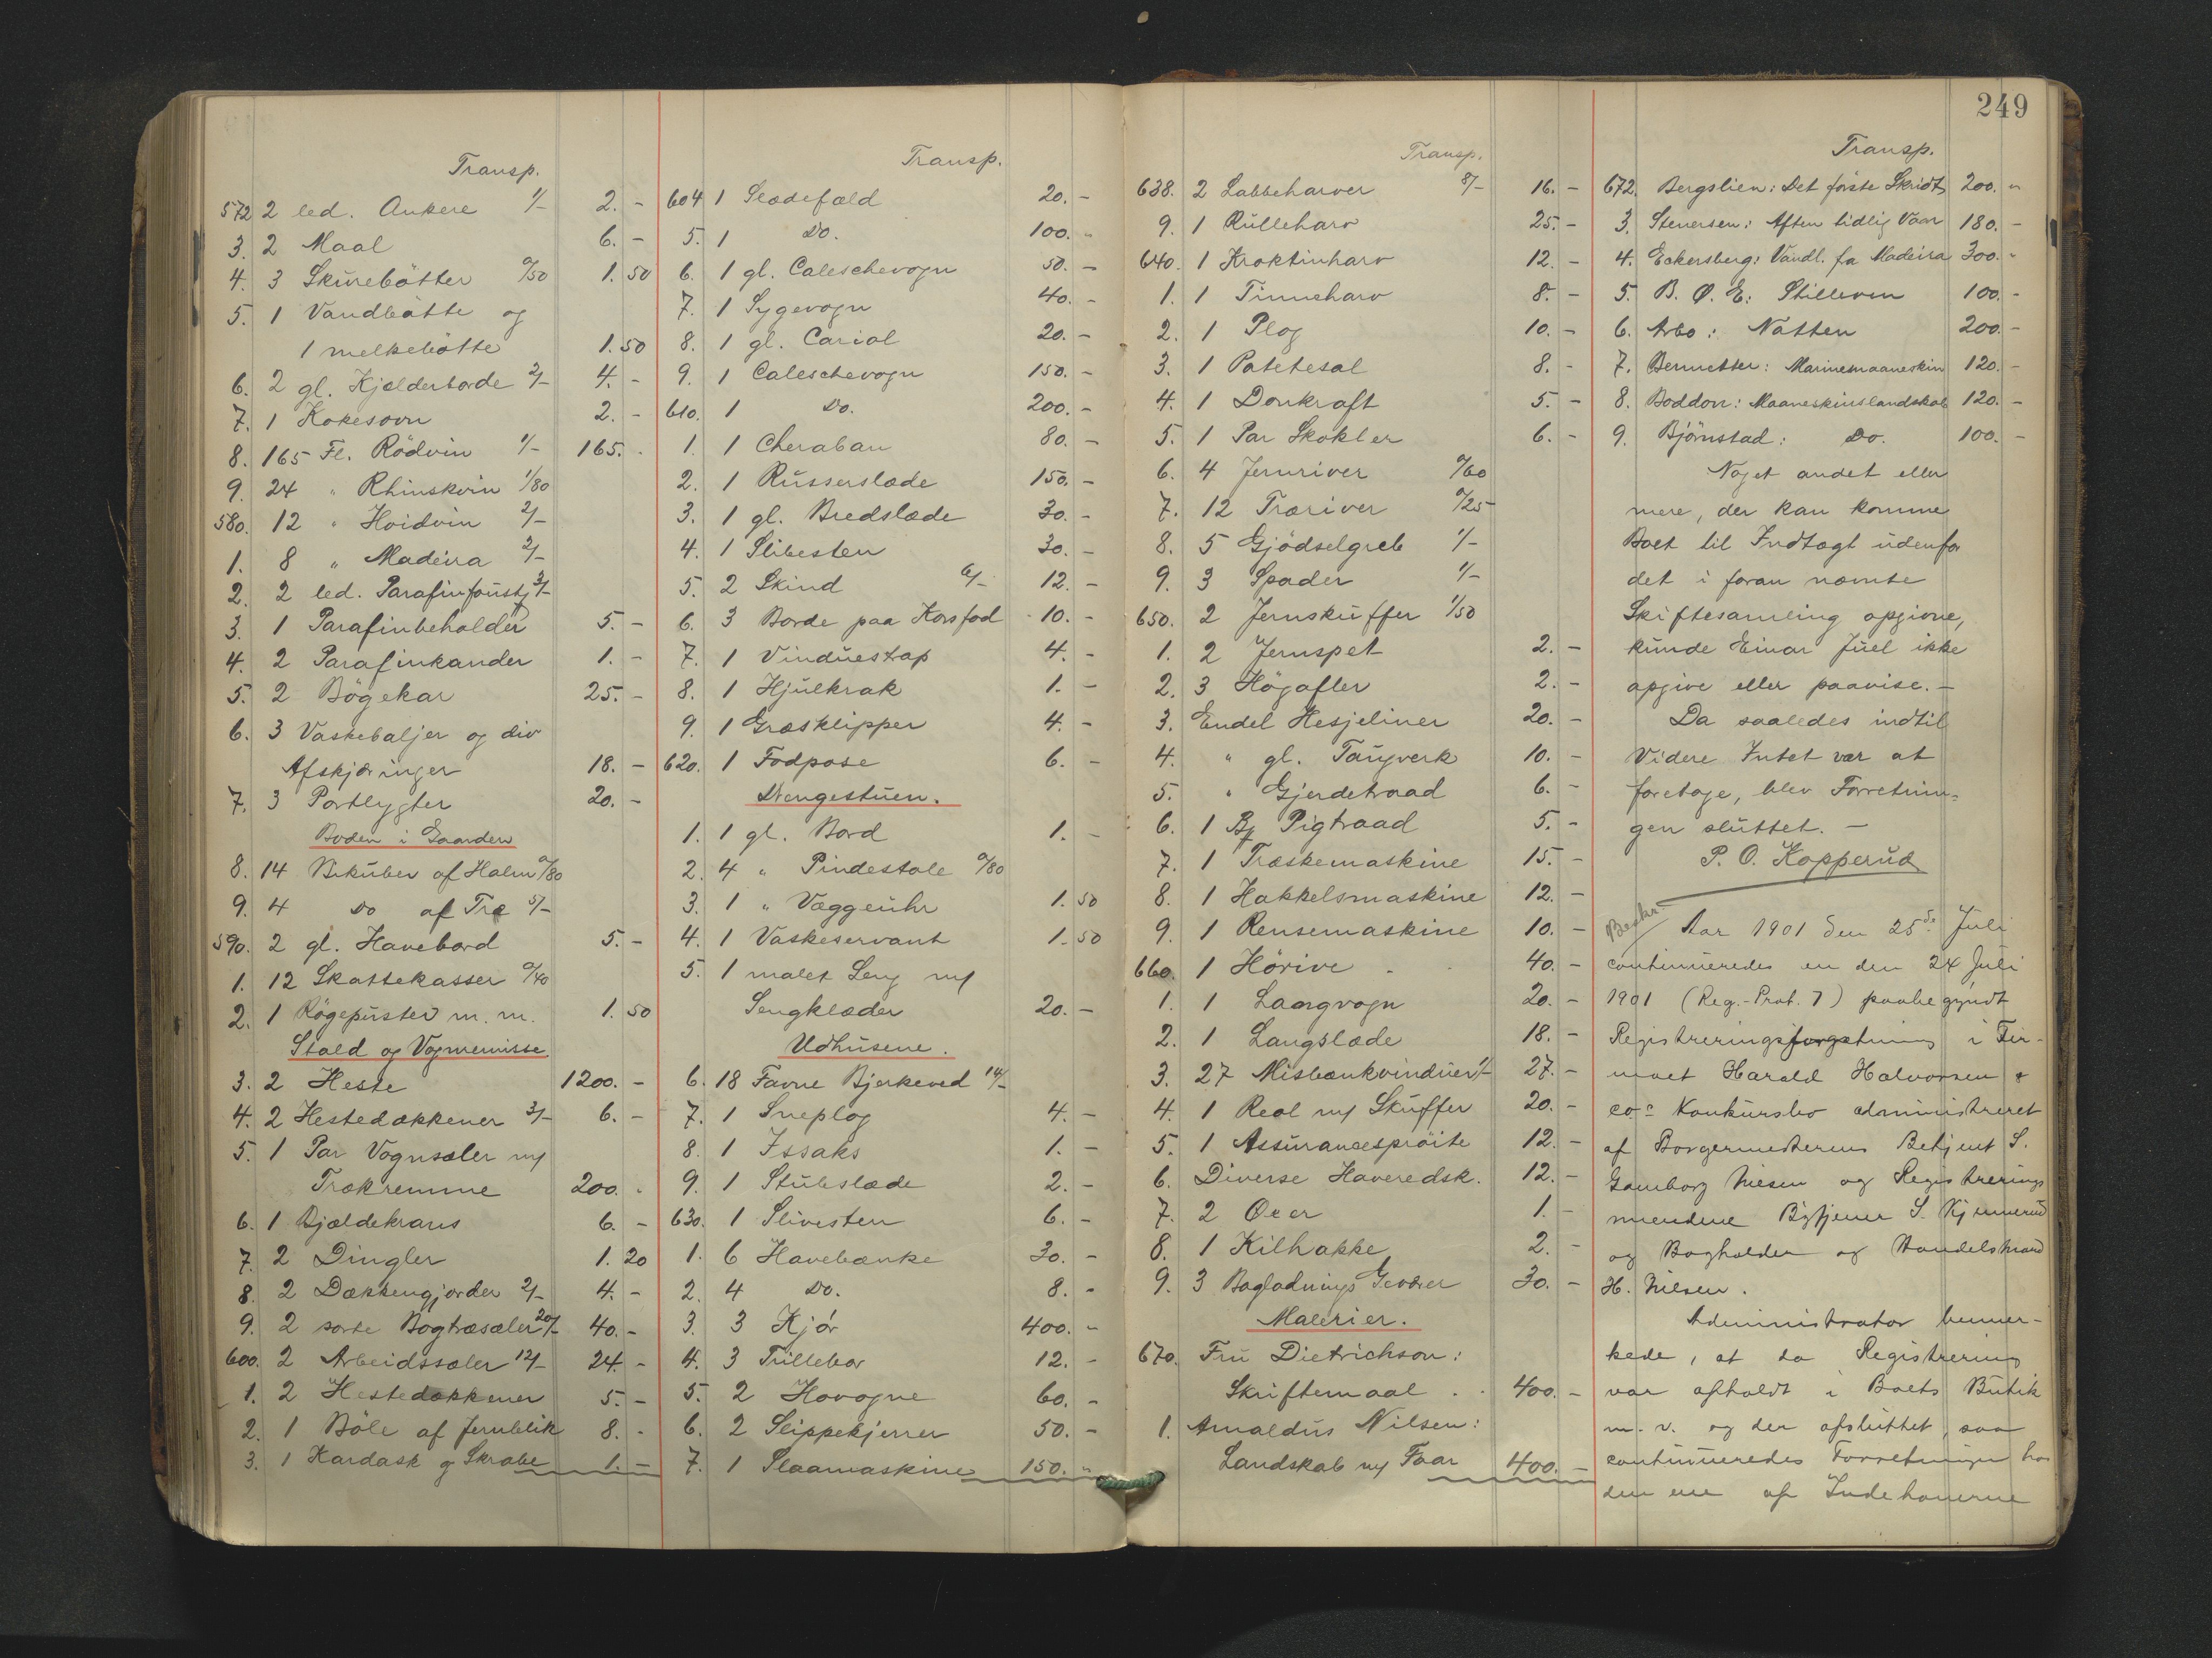 249
Transp.
572 2 led. Ankere 1/- 2. -
3. 2 Maal 6. -
4. 3 Skurebötter 0/50 1. 50
5. 1 Vandbötte og
1 melkebötte 1. 50
6. 2 gl. Kjælderborde 2/- 4. -
7. 1 Kokesovn 2. -
8. 165 Fl. Rödvin 1/- 165. -
9. 24 " Rhinskvin 1/80
580. 12 " Hvidvin 2/-
1. 8 " Madeira 2/-
2. 2 led. Parafinfoustj 3/-
3. 1 Parafinbeholder 5. -
4. 2 Parafinkander 1. -
5. 2 Bögekar 25. -
6. 3 Vaskebaljer og div
Afskjæringer 18. -
7. 3 Portlygter 20. -
Boden i Gaarden
8. 14 Bikuber af Halm 0/80
9. 4 do af Træ 5/-
590. 2 gl. Havebord 5. -
1. 12 Skattekasser 0/40
2. 1 Røgepuster m. m. 1. 50
Stald og Vognremisse
3. 2 Heste 1200. -
4. 2 Hestedækkener 3/- 6. -
5. 1 Par Vognsæler m/
Trækremme 200. -
6. 1 Bjældekrans 6. -
7. 2 Dingler 1. 20
8. 2 Dækkengjorder 2/- 4. -
9. 2 sorte Bogtræsæler 20/- 40. -
600. 2 Arbeidssæler 12/- 24. -
1. 2 Hestedækkener 5. -
2. 1 Böle af Jernblik 8. -
3. 1 Kardask og Skrabe 1. -
Transp.
604 1 Slædefæld 20. -
5. 1 Do. 100. -
6. 1 gl. Caleschevogn 50. -
7. 1 Sygevogn 40. -
8. 1 gl. Cariol 20. -
9. 1 Caleschevogn 150. -
610. 1 Do. 200. -
1. 1 Cheraban 80. -
2. 1 Russerslæde 150. -
3. 1 gl. Bredslæde 30. -
4. 1 Slibesten 30. -
5. 2 Skind 6/- 12. -
6. 3 Borde paa Korsfod 10. -
7. 1 Vinduestrap 4. -
8. 1 Hjulkrak 1. -
9. 1 Græsklipper 4. -
620. 1 Fodpose 6. -
Drengestuen.
1. 1 gl. Bord 1. -
2. 4 " Pindestole 0/80
3. 1 " Væggeuhr 1. 50
4. 1 Vaskeservant 1. 50
5. 1 malet Seng m/
Sengklæder 20. -
Udhusene.
6. 18 Favne Bjerkeved 14/-
7. 1 Sneplog 4. -
8. 1 Issaks 1. -
9. 1 Stubslæde 2. -
630. 1 Slivesten 6. -
1. 6 Havebænke 30. -
2. 4 Do. 8. -
3. 3 Kjör 400. -
4. 3 Trillebør 12. -
5. 2 Hovogne 60. -
6. 2 Slippekjerrer 50. -
7. 1 Slaamaskine 150. -
Transp.
638. 2 Labbeharver 8/- 16. -
9. 1 Rulleharv 25. -
640. 1 Kroktinharv 12. -
1. 1 Tinneharv 8. -
2. 1 Plog 10. -
3. 1 Potetesal 8. -
4. 1 Donkraft 5. -
5. 1 Par Skokler 6. -
6. 4 Jernriver 0/60
7. 12 Træriver 0/25
8. 5 Gjödselgreb 1/-
9. 3 Spader 1/-
650. 2 Jernskuffer 1/50
1. 2 Jernspet 2. -
2. 3 Högafler 2. -
3. Endel Hesjeliner 20. -
4. " gl. Taugverk 10. -
5. " Gjerdetraad 6. -
6. 1 Bj Pigtraad 5. -
7. 1 Træskemaskine 15. -
8. 1 Hakkelsmaskine 12. -
9. 1 Rensemaskine 10. -
660. 1 Hörive 40. -
1. 1 Laangvogn 20. -
2. 1 Langslæde 18. -
3. 27 Misbænkvinduer 1/- 27. -
4. 1 Reol m/ Skuffer 20. -
5. 1 Assurancespröite 12. -
6. Diverse Haveredsk. 12. -
7. 2 Øxer 1. -
8. 1 Kilhakke 2. -
9. 3 Bagladnings Geværer 30. -
Malerier.
670. Fru Dietrichson:
Skriftemaal . . 400. -
1. Amaldus Nilsen:
Landskab m/ Faar 400. -
Transp.
672. Bergslien: Det første Skridt 200. "
3. Stenersen: Aften tidlig Vaar 180. -
4. Eckersberg: Vandl. fa Madeira 300. -
5. B. Ø. E: Stilleven 100. -
6. Arbo: Natten 200. -
7. Bennetter: Marinemaaneskin 120. -
8. Boddon: Maaneskinslandskab 120. -
9. Bjørnstad: Do. 100. -
Noget andet eller
mere, der kan komme
Boet til Indtægt udenfor
det i foran nævnte
Skiftesamling opgivne,
kunde Einar Juel ikke
opgive eller paavise. -
Da saaledes indtil
Videre Intet var at
foretage, blev Forretnin-
gen sluttet. -
P. O. Kopperud
Beskr.
Aar 1901 den 25de Juli
continueredes en den 24 Juli
1901 (Reg.-Prot. 7) paabegyndt
Registreringsforretning i Fir-
maet Harald Halvorsen &
co's Konkursbo administreret
af Borgermesterens Betjent S.
Gamborg Nilsen og Registrerings
mændene Bytjener S. Kjennerud
og Bogholder og Handelsmand
H. Nilsen.
Administrator bemær-
kede, at da Registrering
var afholdt i Boets Butik
m. v. og der afsluttet, saa
continueredes Forretningen hos
den ene af Indehaverne